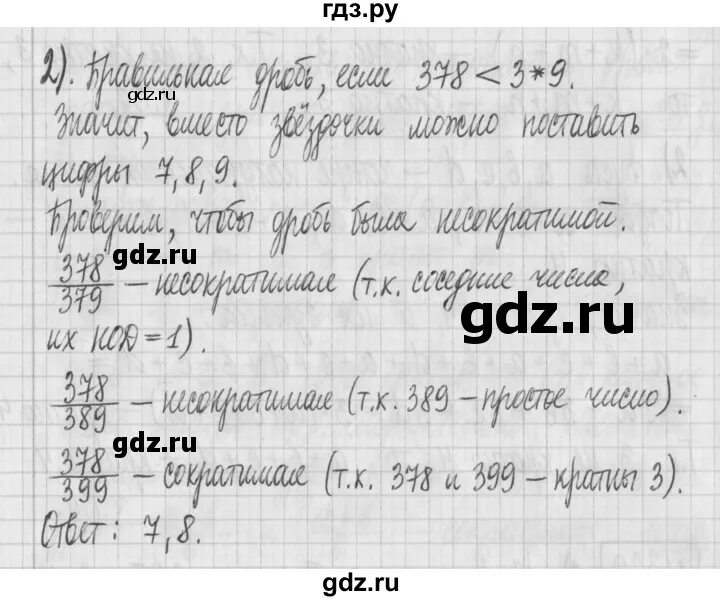 гдз.ру
2). Правильная дробь, если 378 < 3*9.
Значит, вместо звёздочки можно поставить
цифры 7, 8, 9.
Проверим, чтобы дробь была несократимой.
gdz.ru
378/379 – несократимая (т.к. соседние числа,
gdz.ru
их НОД = 1).
378/389 – несократимая (т.к. 389 – простое число).
gdz.ru
378/399 – сократимая (т.к. 378 и 399 – кратны 3).
Ответ: 7, 8.
gdz.ru